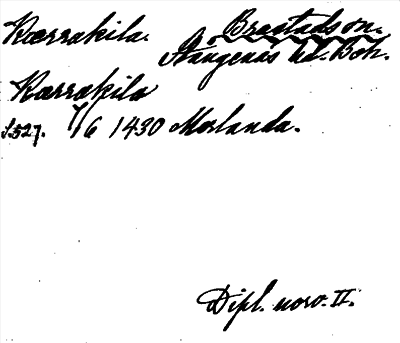 Kærrakila. Brastads sn.
Stångenäs hd. Boh.
Kærrakila
s. 527. 7/6 1430 Morlanda.
Dipl. norv. II.